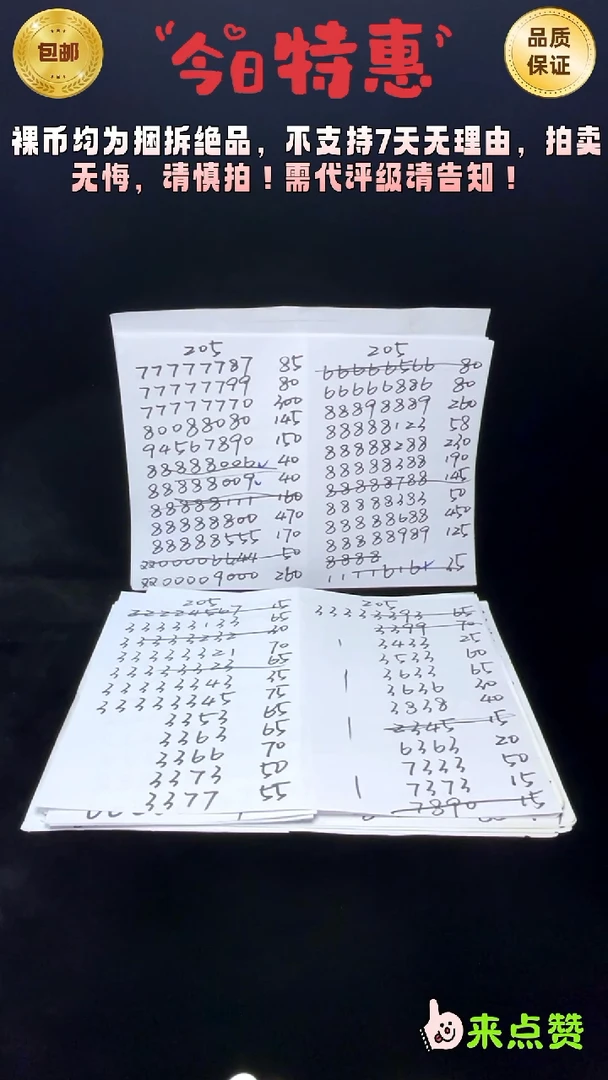 包邮
今日特惠
品质
保证
裸币均为捆拆绝品，不支持7天无理由，拍卖
无悔，请慎拍！需代评级请告知！
205
77777787 85
77777799 80
77777770 300
80088080 145
94567890 150
88888006 40
88888009 40
88888111 160
88888800 470
88888555 170
220000009000 260
205
66666566 80
66666886 80
88898889 260
88888123 58
88888288 230
88888388 190
88888788 145
88888383 50
88888688 450
88888989 125
8888
11116161 35
205
22224567 15
33333133 65
33333232 30
33333321 70
33333323 65
33333343 35
33333345 75
3353 65
3363 65
3366 70
3373 50
3377 55
205
33333393 65
3399 70
3433 25
3533 60
3633 65
3636 30
3838 40
2345 15
6363 20
7333 50
7373 15
7890 15
来点赞